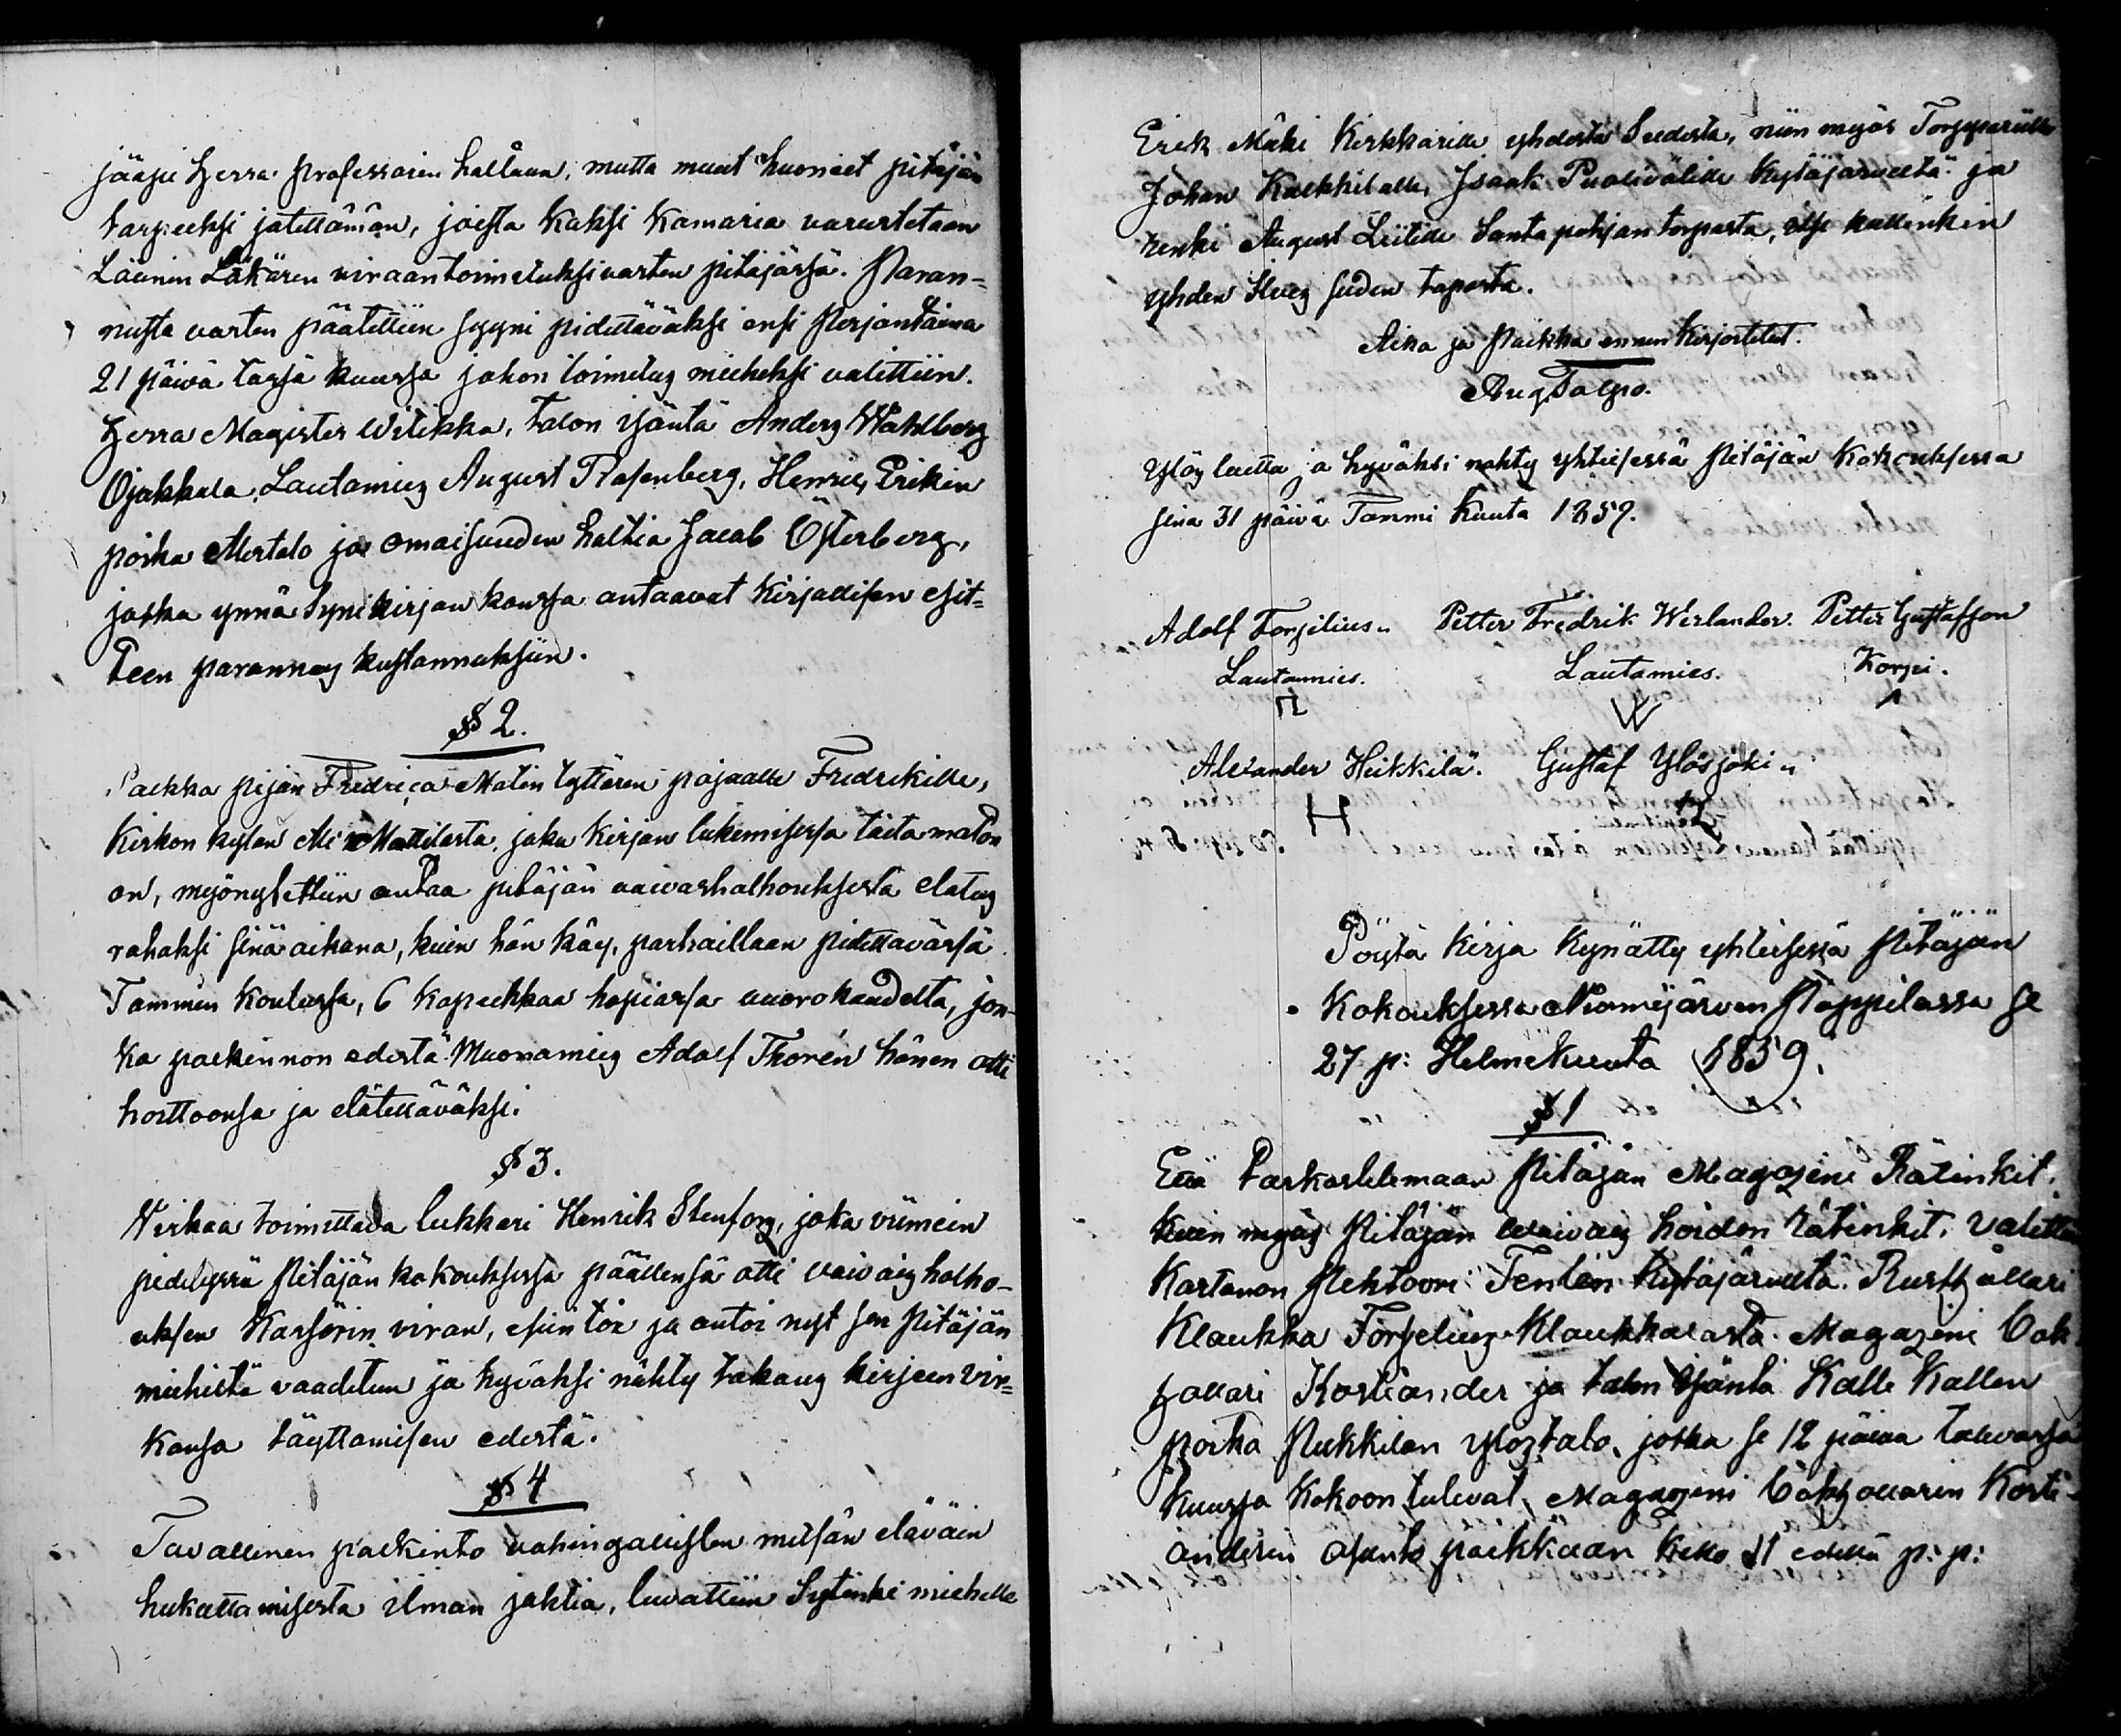 jääpi Herra Professorin haltuun, mutta muut huoneet pitäjän
tarpeeksi jätettämän, joista kaksi kamaria varustetaan
Läänin Läkären viraantoimituksi varten pitäjäsä. Paran-
nusta varten päätettiin syyni pidettäväksi ensi Perjantaina
21 päivä tasja kuussa johon toimitus mieheksi valittiin.
Herra Magister Witikka, talon isäntä Anders Wahlberg
Ojakkala, Lautamies August Rosenberg, Henric Erikin
poika Mertalo ja omaisuuden haltia Jacob Österberg,
jotka ynnä Synikirjan kansa antaavat kirjallisen esit-
teen parannus kustannuksiin.
§ 2.
Paikka pijan Fredrica Matin tyttären pojalle Fredrikille,
Kirkon kylan Ali Mattilasta, joka kirjan lukemisessa taitamaton
on, myönyttettiin antaa pitäjän vaivashalhouksesta elatus
rahaksi sinä aikana, kuin hän käy, parhaillaan pidettavässä
Tammun koulussa, 6 kopeekkaa hopiassa vuorokaudelta, jon-
ka palkinnon edestä Muonamies Adolf Thorén hänen otti
hoittoonsa ja elätettäväksi.
§ 3.
Virkaa toimittava lukkari Henrik Stenfors, joka viimein
pidetyssä Pitäjän kokouksessa päällensä otti vaivais holho-
uksen Kassörin viran, esiin töi ja antoi nyt sen Pitäjän
miehistä vaaditun ja hyväksi nähty takaus kirjeen vir-
kansa täyttamisen edestä.
§ 4
Tavallinen palkinto vahingallisten metsän eläväin
hukuttamisesta ilman jahtia, luvattiin Sytinki miehelle
Erik Mäki Kirkkarille yhdestä Sudesta, niin myös Torpparille
Johan Kalkkilalle, Isaak Puolivälille Kytäjärveltä ja
renki August Liitille Santapohjan torpasta, itse kullenkin
yhden Ilves suden taposta.
Aika ja Paikka ennen kirjoitetut.
Aug Talpo.
Ylös luettu ja hyväksi nähty yhteisessä Pitäjän Kokouksessa
sina 31 päivä Tammi Kuuta 1859.
Adolf Forsilius Petter Fredrik Werlander. Petter Gustafsson
Lautamies. Lautamies. Korpi.
Alexander Heikkilä. Gustaf Ylösjoki
H
Pöytä Kirja Kynätty yhteisessä Pitäjän
Kokouksessa Nurmijärven Pappilassa se
27 p: Helmekuuta 1859.
§ 1
Että Tarkastelemaan Pitäjän Magazini Rätinkit,
kuin myös Pitäjän Waivais hoidon rätinkit, valittin
Kartanon Pehtoori Tenlén Kytäjärveltä. Rusthållari
Klaukka Forselius Klaukkalasta. Magazini Bok
hållari Kosliander ja talon Isäntä Kalle Kallen
poika Pukkilan Ylostalo, jotka se 12 päivä tulevassa
Kuussa Kokoon tulevat, Magazini Bokhållarin Kosti-
anderin asunto paikkaan kello 11 edellä p: p: